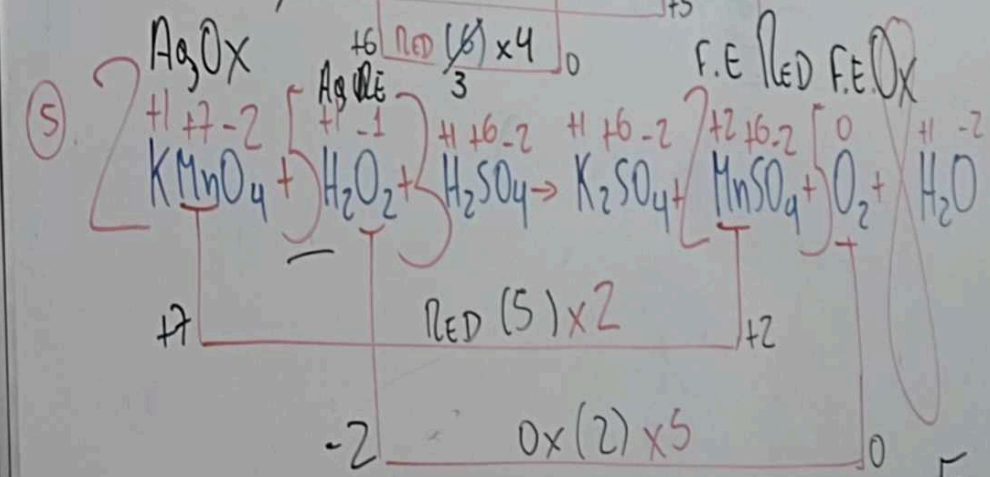 +5
+6 RED (6) x4 0
3
AgOx AgRE F.E RED F.E.Ox
+1 +7 -2 +1 -1 +1 +6 -2 +1 +6 -2 +2 +6 -2 0 +1 -2
5. 2 KMnO4 + 5 H2O2 + 3 H2SO4 → K2SO4 + 2 MnSO4 + 5 O2 + 8 H2O
+7 RED (5) x2 +2
-2 Ox (2) x5 0